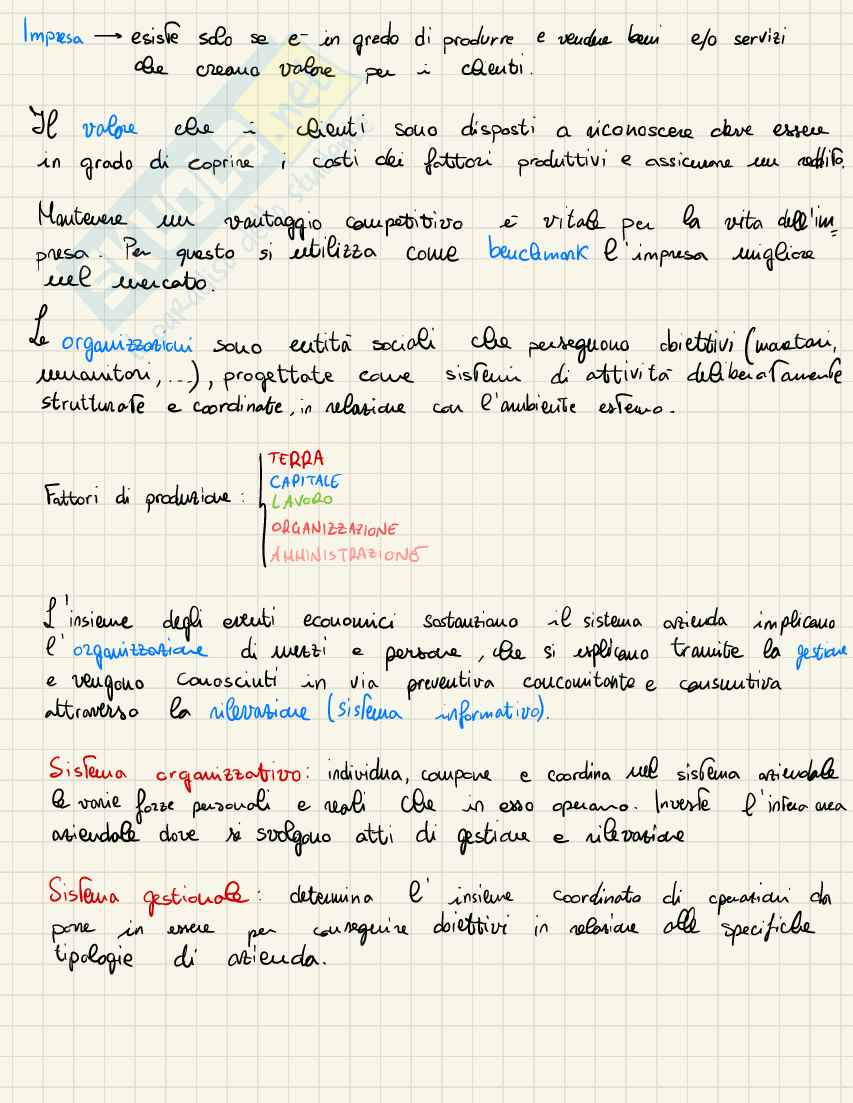 Impresa → esiste solo se è in grado di produrre e vendere beni e/o servizi
che creano valore per i clienti.
Il valore che i clienti sono disposti a riconoscere deve essere
in grado di coprire i costi dei fattori produttivi e assicurare un reddito.
Mantenere un vantaggio competitivo è vitale per la vita dell'im=
presa. Per questo si utilizza come benchmark l'impresa migliore
nel mercato.
Le organizzazioni sono entità sociali che perseguono obiettivi (monetari,
umanitari, ...), progettate come sistemi di attività deliberatamente
strutturate e coordinate, in relazione con l'ambiente esterno.
TERRA
CAPITALE
Fattori di produzione:
LAVORO
ORGANIZZAZIONE
AMMINISTRAZIONE
L'insieme degli eventi economici sostanziano il sistema azienda implicano
l'organizzazione di mezzi e persone, che si esplicano tramite la gestione
e vengono conosciuti in via preventiva concomitante e consuntiva
attraverso la rilevazione (sistema informativo).
Sistema organizzativo: individua, compone e coordina nel sistema aziendale
le varie forze personali e reali che in esso operano. Investe l'intera area
aziendale dove si svolgono atti di gestione e rilevazione
Sistema gestionale: determina l'insieme coordinato di operazioni da
porre in essere per conseguire obiettivi in relazione alle specifiche
tipologie di azienda.
SKUOLA.net
il paradiso dello studente